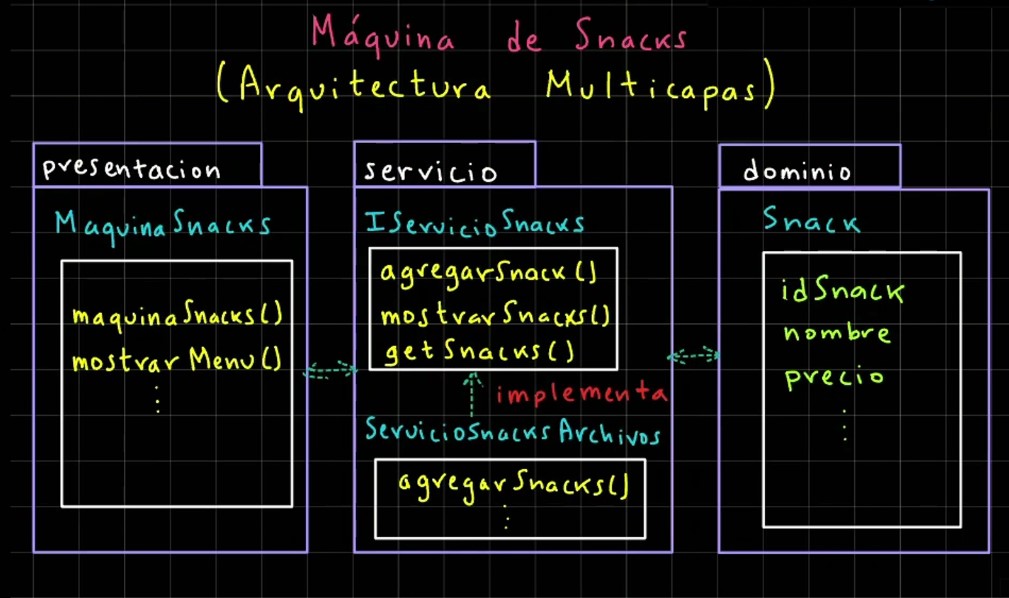 Máquina de Snacks
(Arquitectura Multicapas)
presentacion
MaquinaSnacks
maquinaSnacks()
mostrarMenu()
servicio
IServicioSnacks
agregarSnack()
mostrarSnacks()
getSnacks()
implementa
ServicioSnacksArchivos
agregarSnacks()
dominio
Snack
idSnack
nombre
precio